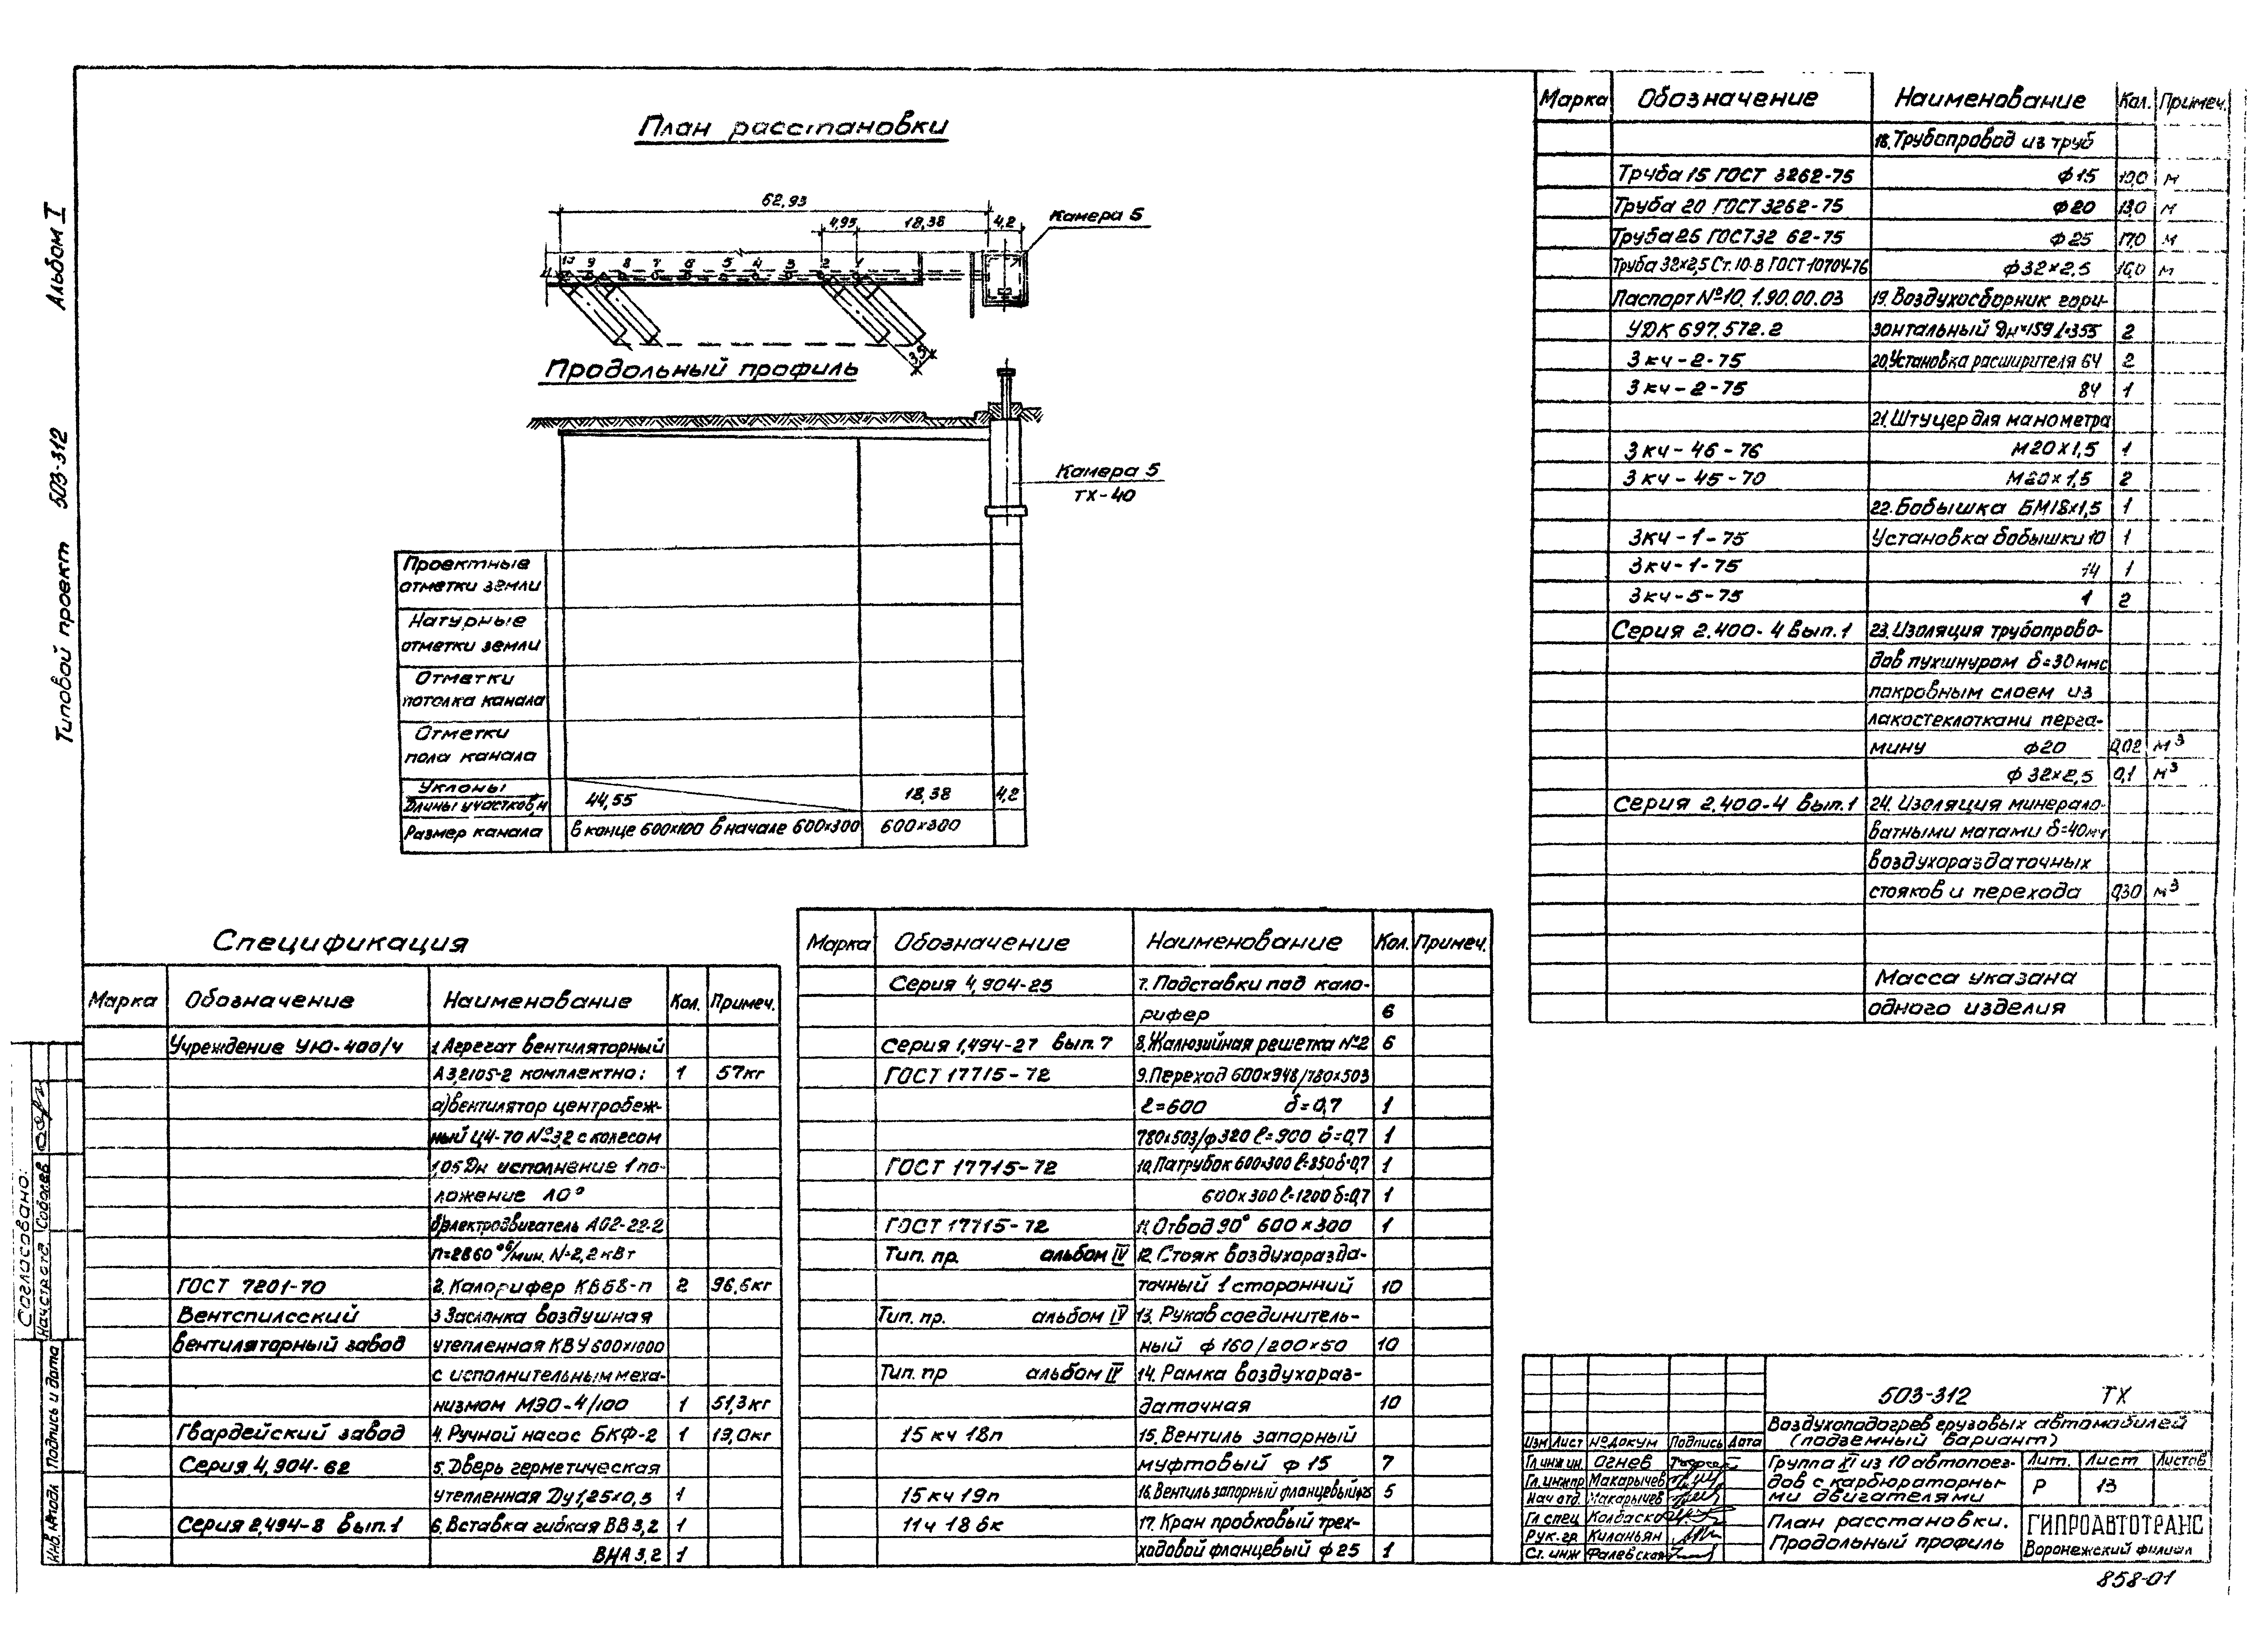 Альбом I
Типовой проект 503-312
План расстановки
62,93
4,95 18,38 4,2
Камера 5
10 9 8 7 6 5 4 3 2 1
3,5
Продольный профиль
Камера 5
ТХ-40
Проектные
отметки земли
Натурные
отметки земли
Отметки
потолка канала
Отметки
пола канала
Уклоны
Длины участков, м 44,55 18,38 4,2
Размер канала в конце 600х100 в начале 600х300 600х300
Спецификация
Марка Обозначение Наименование Кол. Примеч.
Учреждение УЮ-400/4 1. Агрегат вентиляторный
А3,2105-2 комплектно: 1 57кг
а) вентилятор центробеж-
ный Ц4-70 №3,2 с колесом
1,05 Дн исполнение 1 по-
ложение Л0°
б) электродвигатель А02-22-2
n=2860 об/мин. N=2,2 кВт
ГОСТ 7201-70 2. Калорифер КВБ8-п 2 96,6кг
Вентспилсский 3. Заслонка воздушная
вентиляторный завод утепленная КВУ 600х1000
с исполнительным меха-
низмом МЭО-4/100 1 51,3кг
Гвардейский завод 4. Ручной насос БКФ-2 1 19,0кг
Серия 4,904-62 5. Дверь герметическая
утепленная Ду 1,25х0,5 1
Серия 2,494-8 вып.1 6. Вставка гибкая ВВ3,2 1
ВНА3,2 1
Марка Обозначение Наименование Кол. Примеч.
Серия 4,904-25 7. Подставки под кало-
рифер 6
Серия 1,494-27 вып. 7 8. Жалюзийная решетка №2 6
ГОСТ 17715-72 9. Переход 600х948/780х503
ℓ=600 δ=0,7 1
780х503/ф320 ℓ=900 δ=0,7 1
ГОСТ 17715-72 10. Патрубок 600х300 ℓ=850 δ=0,7 1
600х300 ℓ=1200 δ=0,7 1
ГОСТ 17715-72 11. Отвод 90° 600х300 1
Тип. пр. альбом IV 12. Стояк воздухоразда-
точный 1 сторонний 10
Тип. пр. альбом IV 13. Рукав соединитель-
ный ф 160/200х50 10
Тип. пр альбом IV 14. Рамка воздухораз-
даточная 10
15 кч 18п 15. Вентиль запорный
муфтовый ф 15 7
15 кч 19п 16. Вентиль запорный фланцевый ф25 5
11ч 18 бк 17. Кран пробковый трех-
ходовой фланцевый ф 25 1
Марка Обозначение Наименование Кол. Примеч.
18. Трубопровод из труб
Труба 15 ГОСТ 3262-75 ф15 10,0 м
Труба 20 ГОСТ 3262-75 ф20 13,0 м
Труба 25 ГОСТ 32 62-75 ф25 17,0 м
Труба 32х2,5 Ст.10-В ГОСТ 10704-76 ф32х2,5 16,0 м
Паспорт №10. 1.90.00.03 19. Воздухосборник гори-
УДК 697.572.2 зонтальный Дн=159 ℓ=355 2
3 кч-2-75 20. Установка расширителя 64 2
3 кч-2-75 84 1
21. Штуцер для манометра
3 кч-46-76 М20х1,5 1
3 кч-45-70 М20х1,5 2
22. Бобышка БМ18х1,5 1
3кч-1-75 Установка бобышки 10 1
3кч-1-75 14 1
3кч-5-75 1 2
Серия 2.400-4 вып.1 23. Изоляция трубопрово-
дов пухшнуром δ=30мм с
покровным слоем из
лакостеклоткани перга-
мину ф20 0,02 м³
ф 32х2,5 0,1 м³
Серия 2.400-4 вып.1 24. Изоляция минерало-
ватными матами δ=40мм
воздухораздаточных
стояков и перехода 0,30 м³
Масса указана
одного изделия
Согласовано:
Нач.стр.отд. Соболев
Инв. №подл Подпись и дата
503-312 ТХ
Воздухоподогрев грузовых автомобилей
(подземный вариант)
Изм Лист №докум Подпись Дата
Гл инж ин. Огнев
Гл. инж пр Макарычев
Нач отд. Макарычев
Гл спец Колбаско
Рук. гр. Киланьян
Ст. инж Фалевская
Группа XI из 10 автопоез-
дов с карбюраторны-
ми двигателями
Лит. Лист Листов
Р 13
План расстановки.
Продольный профиль
ГИПРОАВТОТРАНС
Воронежский филиал
858-01